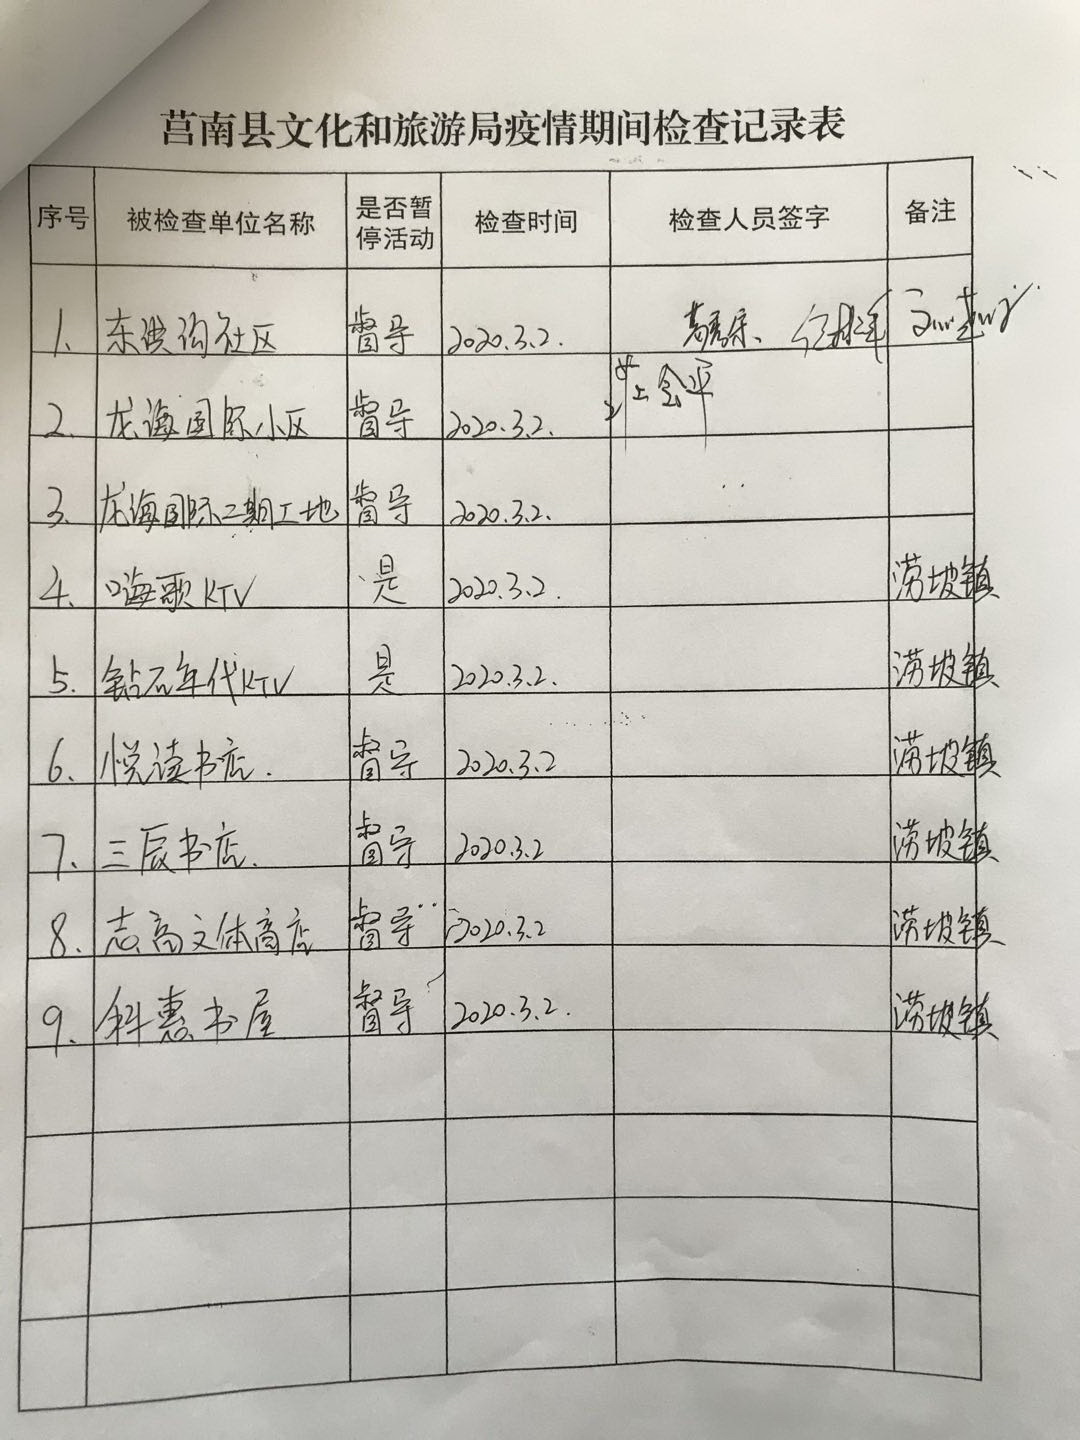 莒南县文化和旅游局疫情期间检查记录表
序号 被检查单位名称 是否暂停活动 检查时间 检查人员签字 备注
1. 东洪沟社区 督导 2020.3.2.
2. 龙海国际小区 督导 2020.3.2.
3. 龙海国际二期工地 督导 2020.3.2.
4. 嗨歌KTV 是 2020.3.2. 涝坡镇
5. 钻石年代KTV 是 2020.3.2. 涝坡镇
6. 悦读书店. 督导 2020.3.2 涝坡镇
7. 三辰书店. 督导 2020.3.2 涝坡镇
8. 志高文体商店 督导 2020.3.2 涝坡镇
9. 科惠书屋 督导 2020.3.2. 涝坡镇